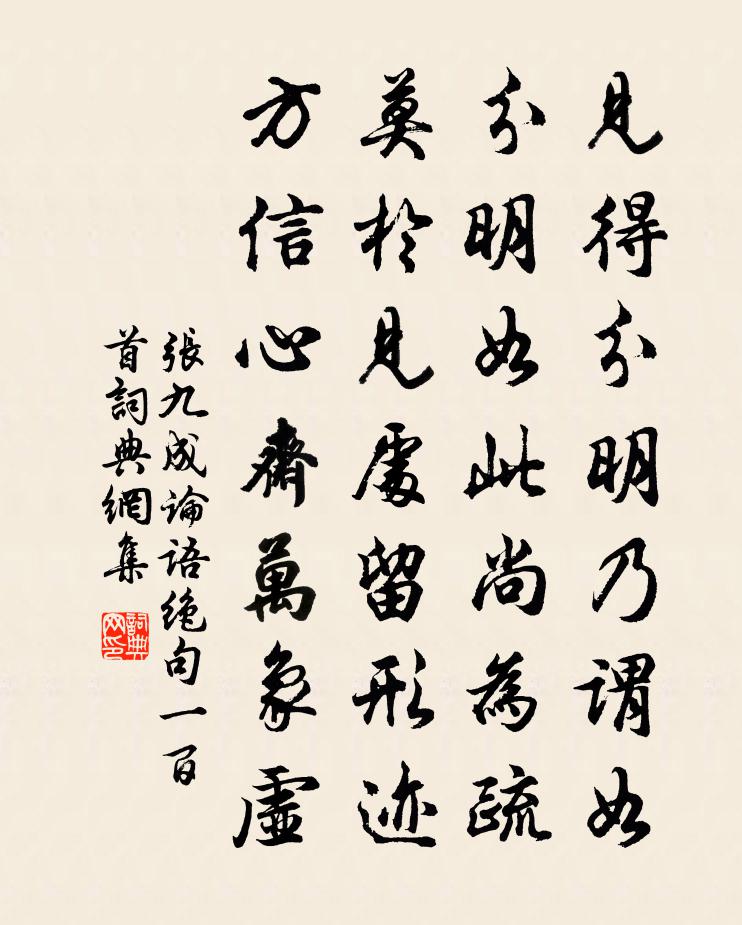 見得分明乃謂如
分明如此尚為疏
莫於見處留形迹
方信心齋萬象虛
張九成論語絶句一百
首詞典網集
詞典
网印